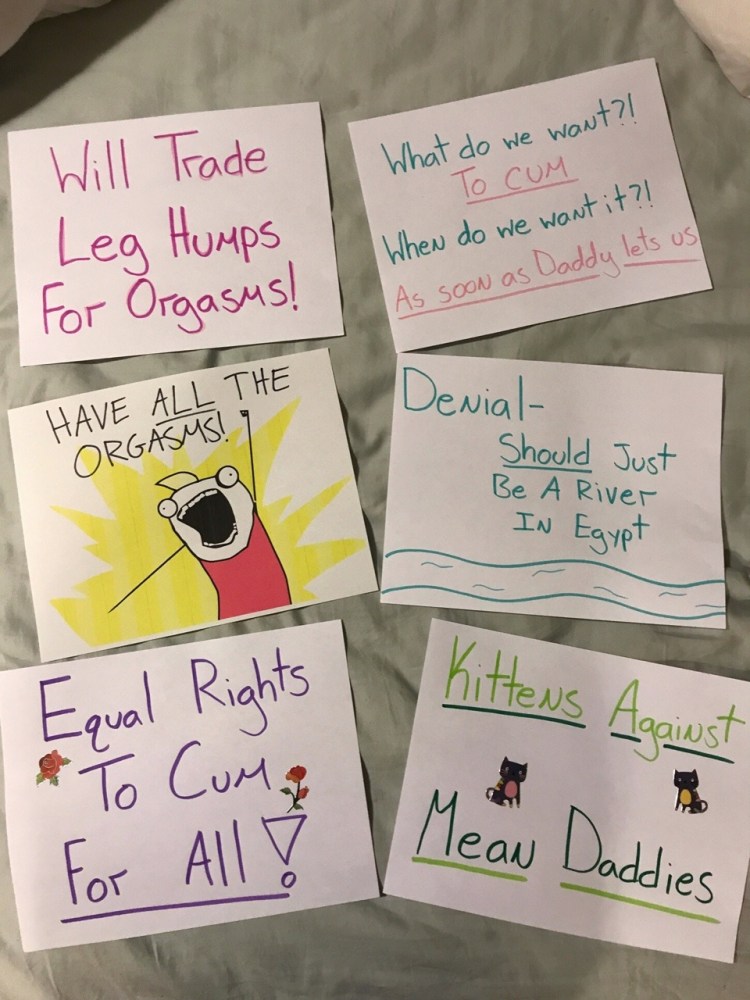 Will Trade
Leg Humps
For Orgasms!
What do we want?!
To CUM
When do we want it?!
As soon as Daddy lets us
HAVE ALL THE
ORGASMS!
Denial-
Should Just
Be A River
In Egypt
Equal Rights
To Cum
For All!
Kittens Against
Mean Daddies